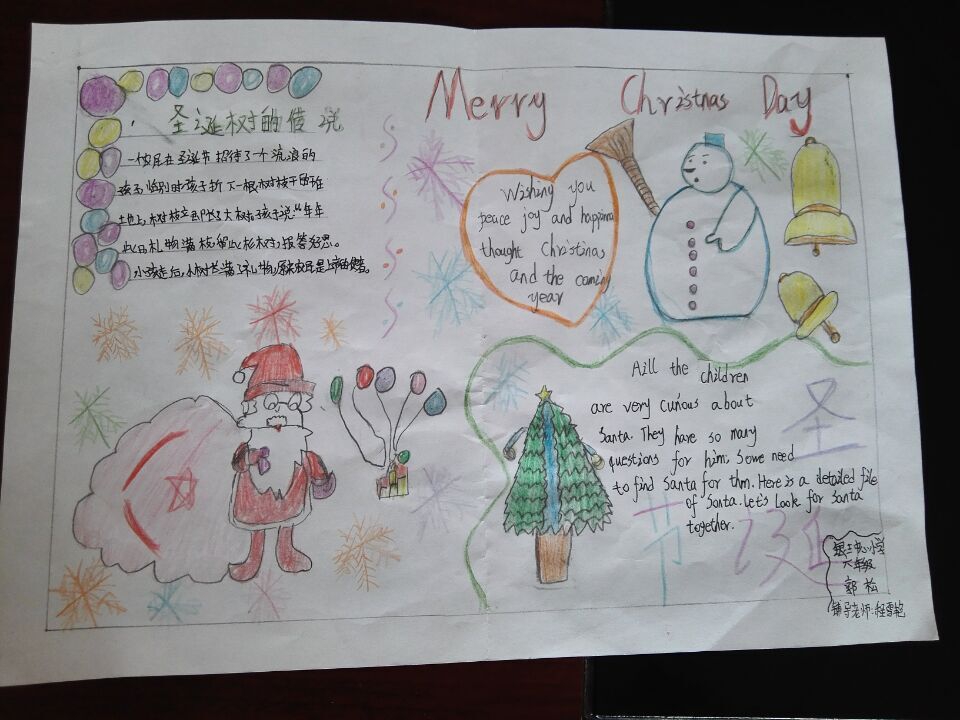 圣诞树的传说
一农民在圣诞节招待了一个流浪的
孩子,临别时孩子折下一根树枝
土地上,树枝立即变成大树,孩子说:“年年
此日,礼物满枝,留此杉树,报答好意。
小孩走后,小树长满了礼物,原来
Merry Christmas Day
Wishing you
peace joy and happine
thought Christinas
and the coming
year
Aill the children
are very curious about
Santa. They have so many
questions for him. Some need
to find Santa for thm. Here is a detailed file
of Santa. Let's Look for Santa
together.
圣
诞
节
中心小学
六年级
郭 松
辅导老师:程雪艳